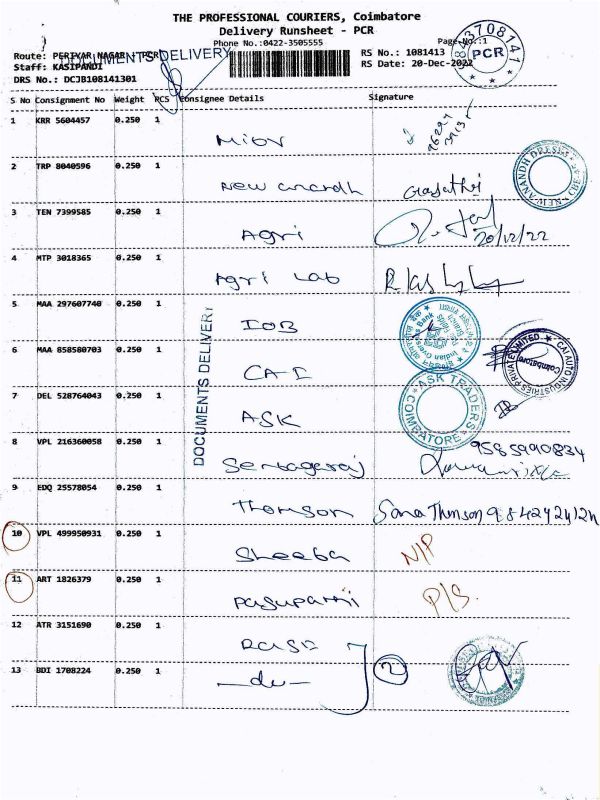 THE PROFESSIONAL COURIERS, Coimbatore
Delivery Runsheet - PCR
Phone No.:0422-3505555
Page No.:1
Route: PERIYAR NAGAR - PCR
RS No.: 1081413
Staff: KASIPANDI
RS Date: 20-Dec-2022
DRS No.: DCJB108141301
DOCUMENTS DELIVERY
843708141
PCR
S No Consignment No Weight PCS Consignee Details Signature
1 KRR 5604457 0.250 1
2 TRP 8040596 0.250 1 New anandh Gayathri
NEW ANANDH DRESSES
3 TEN 7399585 0.250 1 Agri 20/12/22
4 MTP 3018365 0.250 1 Agri Lab
5 MAA 297607740 1 IOB
Indian Overseas Bank
6 MAA 858580703 0.250 1 CAI
CAI AUTO INDUSTRIES PRIVATE LIMITED
Coimbatore
7 DEL 528764043 0.250 1 ASK
ASK TRADERS
COIMBATORE
DOCUMENTS DELIVERY
8 VPL 216360058 0.250 1 9585990834
9 EDQ 25578054 0.250 1 Thomson Sona Thomson 9842424124
10 VPL 499950931 0.250 1 Sheeba N/P
11 ART 1826379 0.250 1 P/S.
12 ATR 3151690 0.250 1
13 BDI 1708224 0.250 1 —du— 2